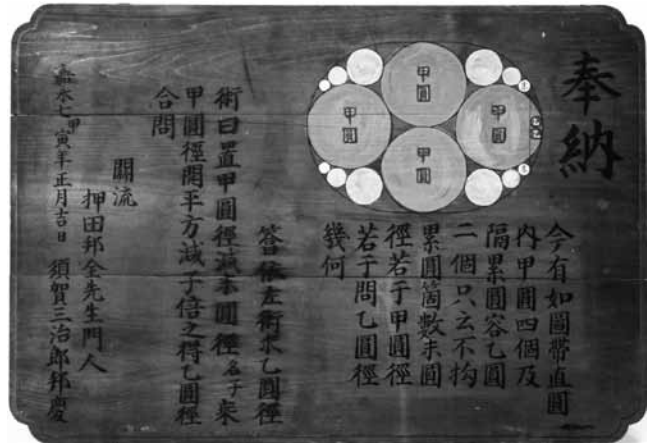 奉納
甲圓
甲圓
甲圓
甲圓
今有如圖帶直圓
内甲圓四個及
隔累圓容乙圓
二個只云不拘
累圓箇數末圓
徑若干甲圓徑
若干問乙圓徑
幾何
答依左術求乙圓徑
術曰置甲圓徑減末圓徑名子乗
甲圓徑開平方減子倍之得乙圓徑
合問
關流
押田邦全先生門人
須賀三治郎邦慶
嘉永七甲寅年正月吉日